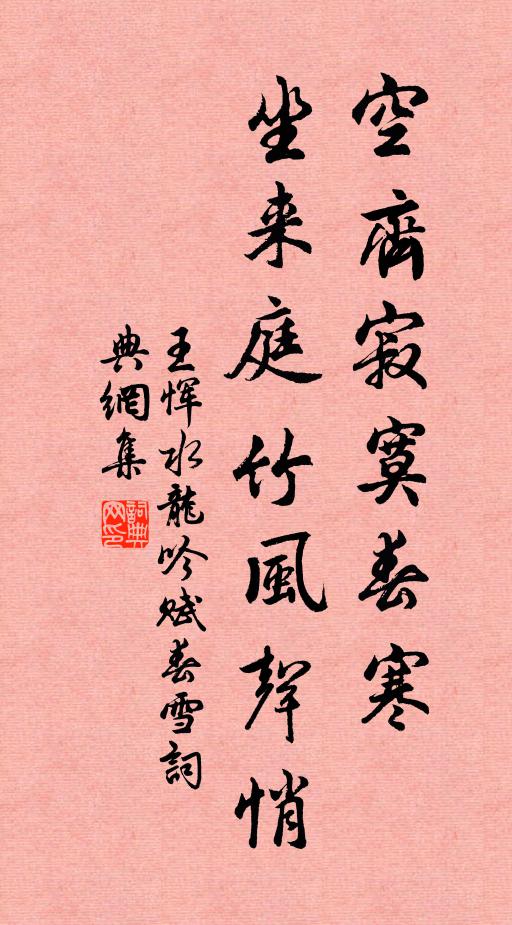 空齋寂寞春寒
坐来庭竹風聲悄
王惲水龍吟赋春雪詞
典網集
詞典网印